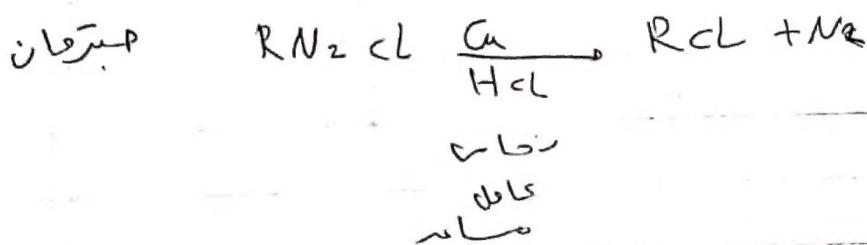 جترمان RN₂CL Cu RCL + N₂
HCL
نحاس
عامل
مساعد